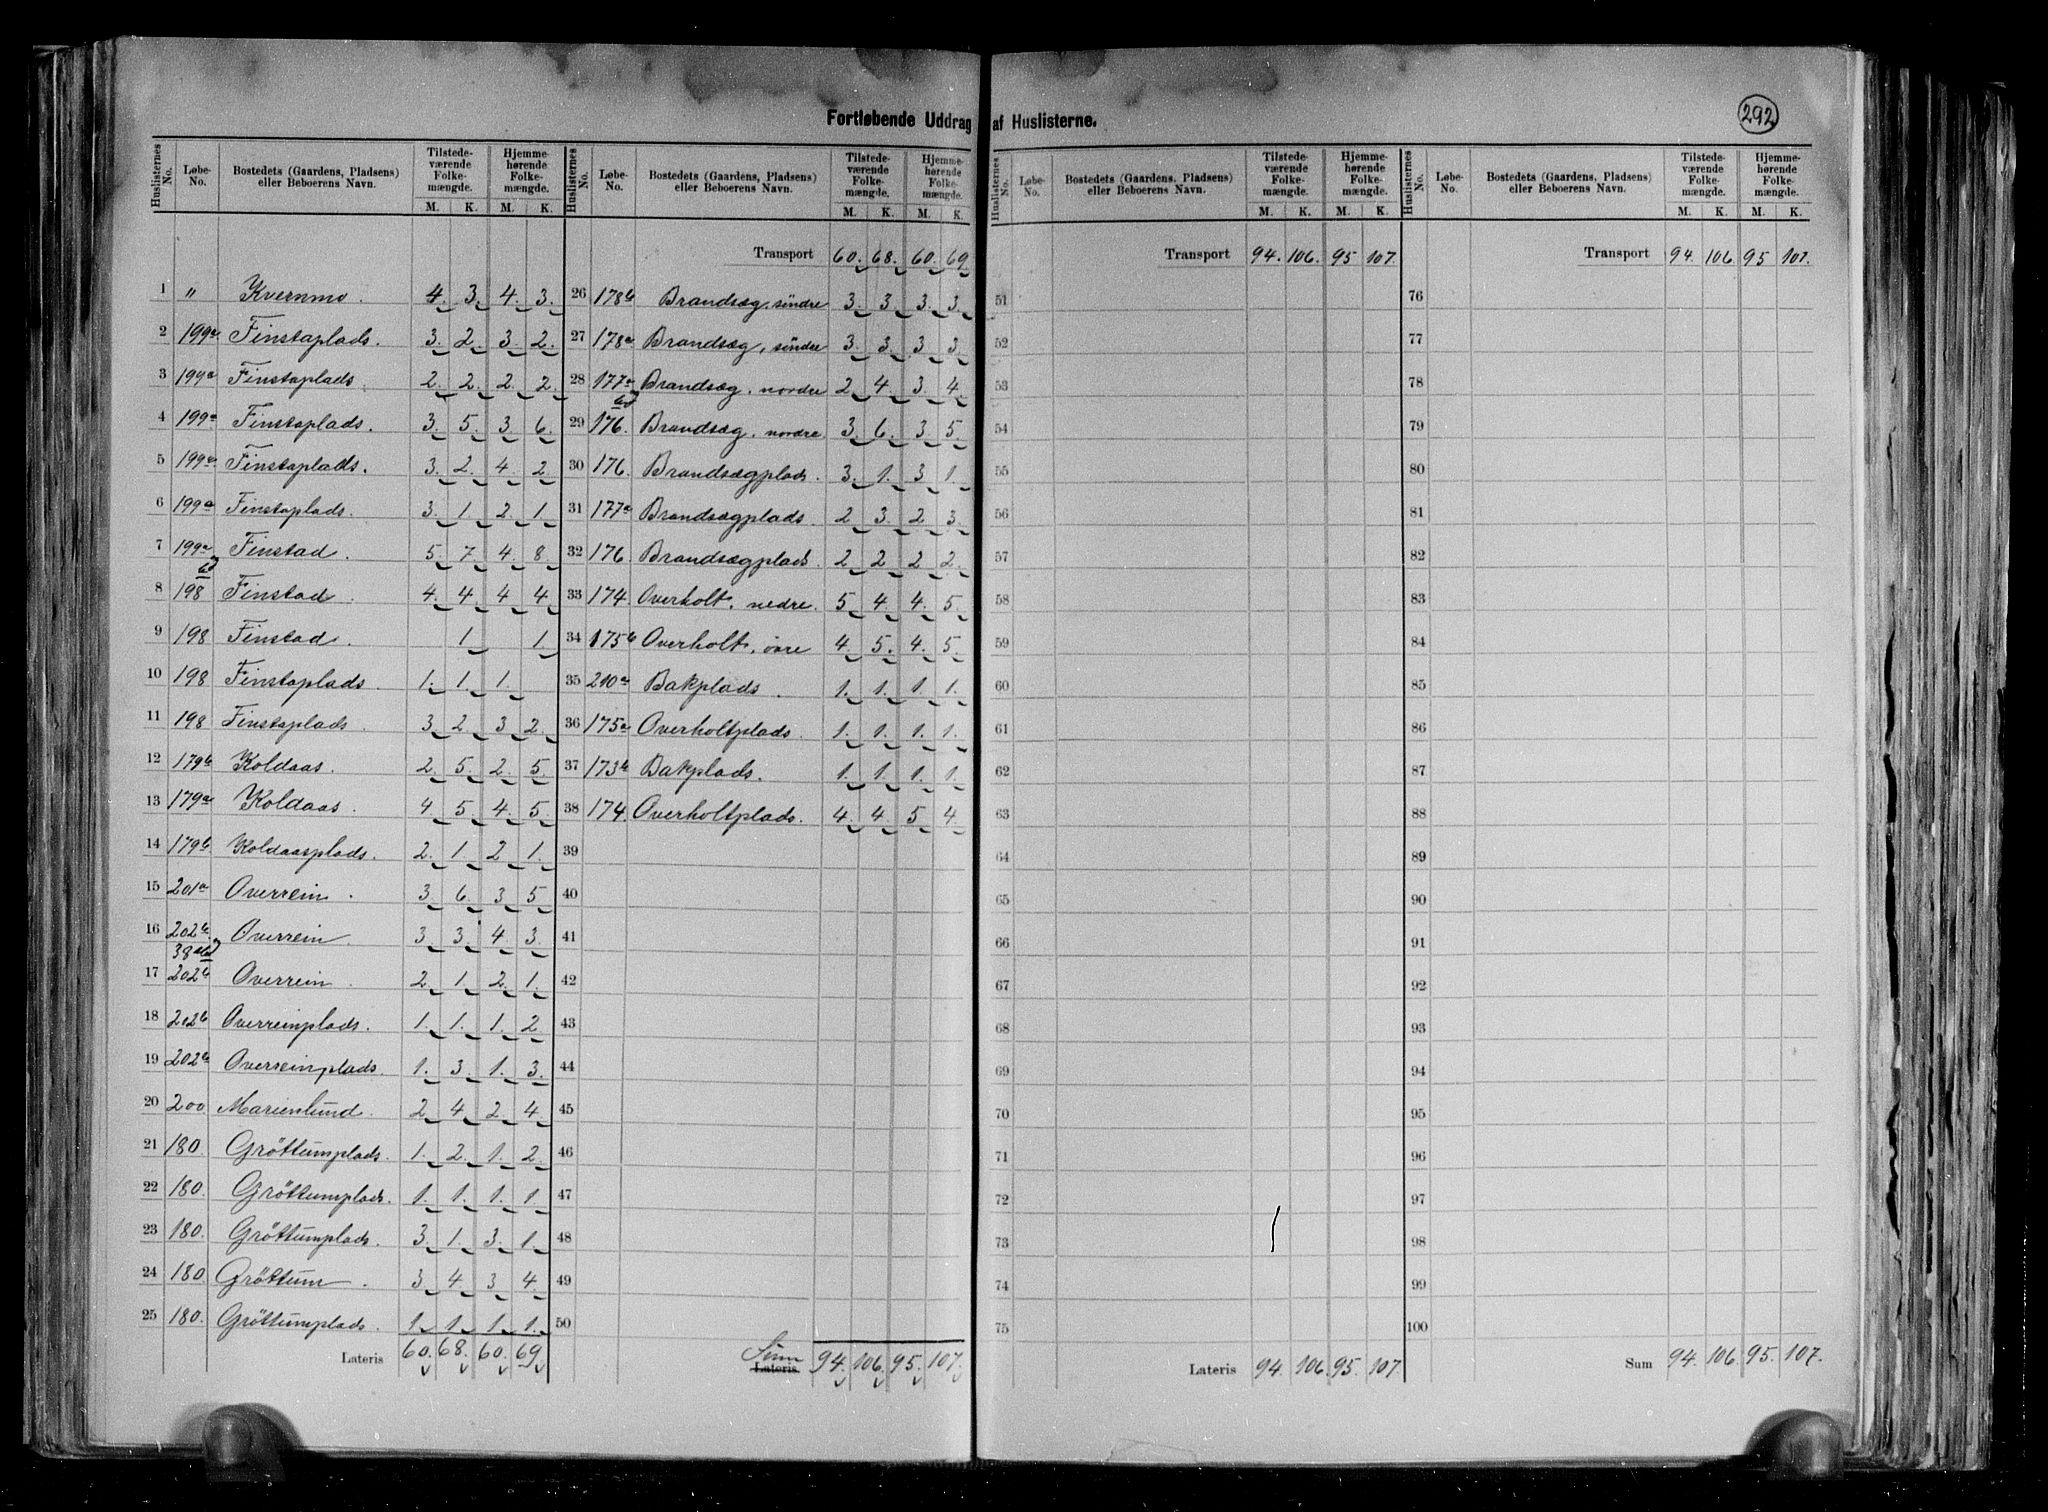 Fortløbende Uddrag af Huslisterne.
292
Huslisternes No. | Løbe-No. | Bostedets (Gaardens, Pladsens) eller Beboerens Navn. | Tilstedeværende Folkemængde. M. K. | Hjemmehørende Folkemængde. M. K.
1 " Kvernmo. 4. 3. 4. 3.
2 199a Finstaplads. 3. 2. 3. 2.
3 199a Finstaplads. 2. 2. 2. 2.
4 199a Finstaplads. 3. 5. 3. 6.
5 199a Finstaplads. 3. 2. 4. 2.
6 199a Finstaplads. 3. 1. 2. 1.
7 199a Finstad. 5. 7. 4. 8.
8 198 Finstad. 4. 4. 4. 4.
9 198 Finstad. 1 1.
10 198 Finstaplads. 1. 1. 1.
11 198 Finstaplads. 3. 2. 3. 2.
12 179b Koldaas. 2. 5. 2. 5.
13 179a Koldaas. 4 5. 4. 5.
14 179b Koldaasplads. 2. 1. 2 1.
15 201a Overrein. 3. 6. 3. 5
16 202b Overrein. 3. 3. 4. 3.
17 202b Overrein. 2. 1. 2. 1.
18 202b Overreinplads. 1. 1. 1. 2
19 202b Overreinplads. 1. 3. 1. 3.
20 200 Marienlund. 2. 4. 2. 4.
21 180. Gröttumplads. 1. 2. 1. 2.
22 180. Gröttumplads. 1. 1. 1. 1
23 180. Gröttumplads. 3. 1. 3. 1.
24 180. Gröttum. 3 4. 3 4.
25 180. Gröttumplads. 1. 1. 1. 1.
Lateris 60. 68. 60. 69
Huslisternes No. | Løbe-No. | Bostedets (Gaardens, Pladsens) eller Beboerens Navn. | Tilstedeværende Folkemængde. M. K. | Hjemmehørende Folkemængde. M. K.
Transport 60. 68. 60. 69
26 178b Brandsæg, söndre 3. 3. 3. 3.
27 178a Brandsæg, söndre 3. 3. 3 3.
28 177a Brandsæg, nordre 2. 4. 3. 4.
29 176. Brandsæg, nordre. 3. 6. 3. 5.
30 176. Brandsægplads. 3. 1. 3 1.
31 177a Brandsægplads. 2 3. 2 3.
32 176 Brandsægplads. 2 2 2 2.
33 174. Overholt, nedre. 5 4. 4. 5.
34 175b Overholt, övre 4. 5. 4. 5.
35 210a Bakplads. 1. 1. 1. 1.
36 175a Overholtplads. 1. 1. 1. 1.
37 173b Bakplads. 1. 1. 1. 1.
38 174. Overholtplads. 4. 4. 5 4.
39
40
41
42
43
44
45
46
47
48
49
50
Sum Lateris 94. 106. 95. 107.
Huslisternes No. | Løbe-No. | Bostedets (Gaardens, Pladsens) eller Beboerens Navn. | Tilstedeværende Folkemængde. M. K. | Hjemmehørende Folkemængde. M. K.
Transport 94. 106. 95 107.
51
52
53
54
55
56
57
58
59
60
61
62
63
64
65
66
67
68
69
70
71
72
73
74
75
Lateris 94. 106. 95. 107.
Huslisternes No. | Løbe-No. | Bostedets (Gaardens, Pladsens) eller Beboerens Navn. | Tilstedeværende Folkemængde. M. K. | Hjemmehørende Folkemængde. M. K.
Transport 94. 106. 95 107.
76
77
78
79
80
81
82
83
84
85
86
87
88
89
90
91
92
93
94
95
96
97
98
99
100
Sum 94. 106. 95. 107.